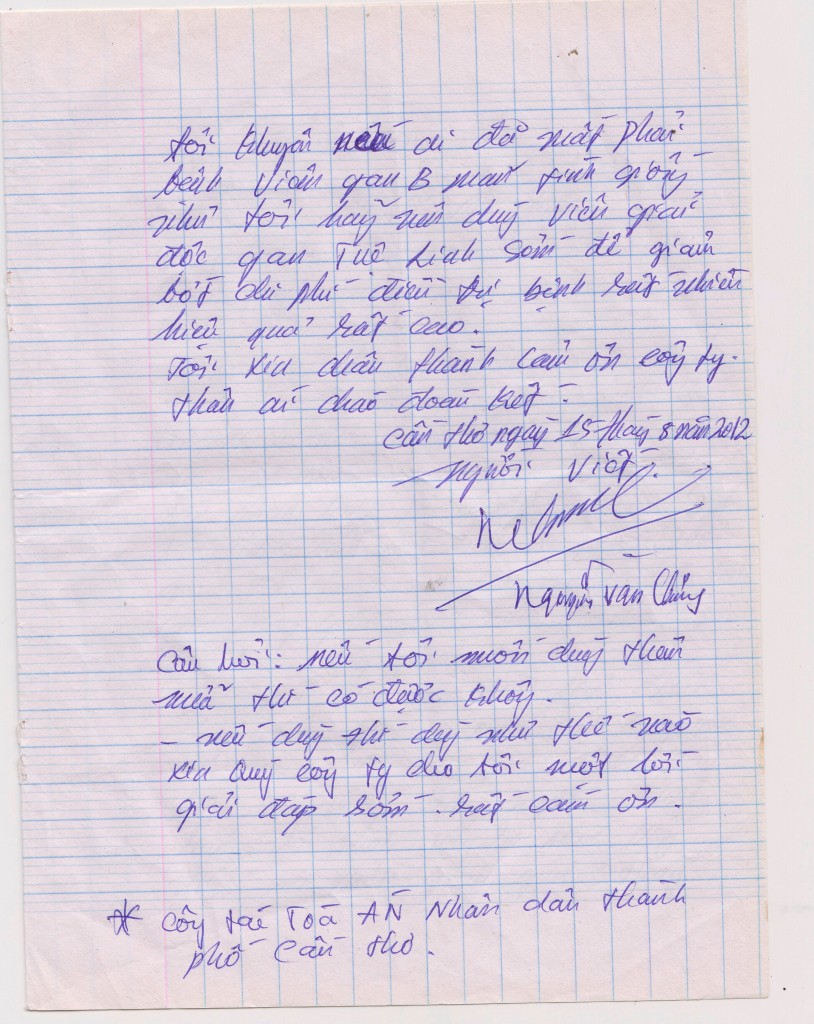 tôi khuyên nếu ai đã mắc phải
bệnh viêm gan B mãn tính giống
như tôi hãy nên dùng viên giải
độc gan Tuệ Linh sớm để giảm
bớt chi phí điều trị bệnh rất nhiều
hiệu quả rất cao.
Tôi xin chân thành cảm ơn công ty.
thân ái chào đoàn kết.
Cần thơ ngày 15 tháng 8 năm 2012
người viết.
Nguyễn Văn Chúng
Câu hỏi: nếu tôi muốn dùng thêm
nữa thì có được không.
- nếu dùng thì dùng như thế nào
xin quý công ty cho tôi một lời
giải đáp sớm. rất cảm ơn.
* Công tác Toà ÁN Nhân dân thành
phố Cần thơ.